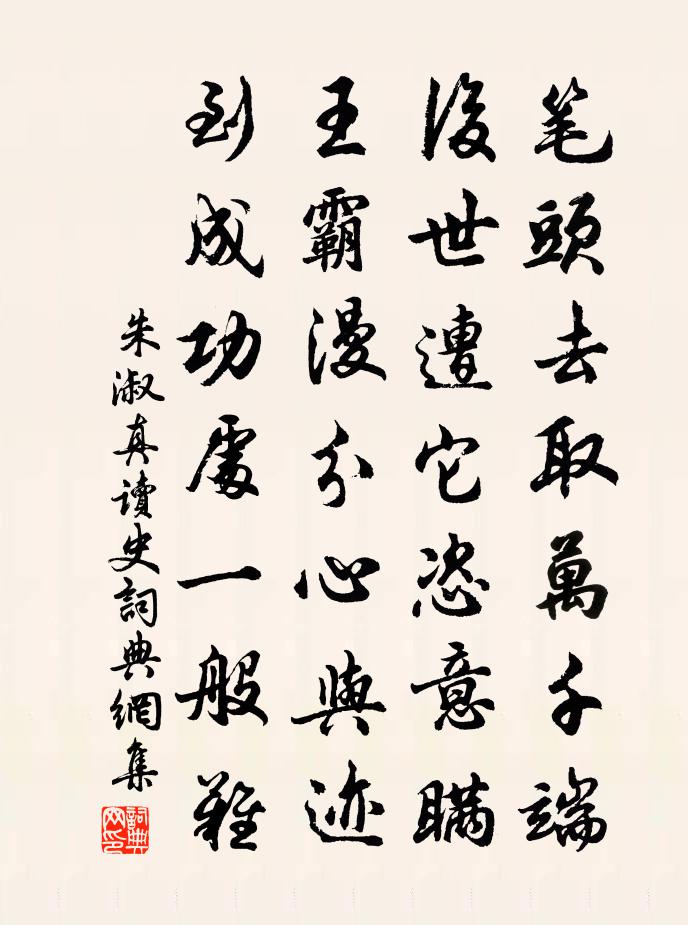 笔頭去取萬千端
後世遭它恣意瞞
王霸漫分心與迹
到成功處一般難
朱淑真讀史詞典網集
詞典網印